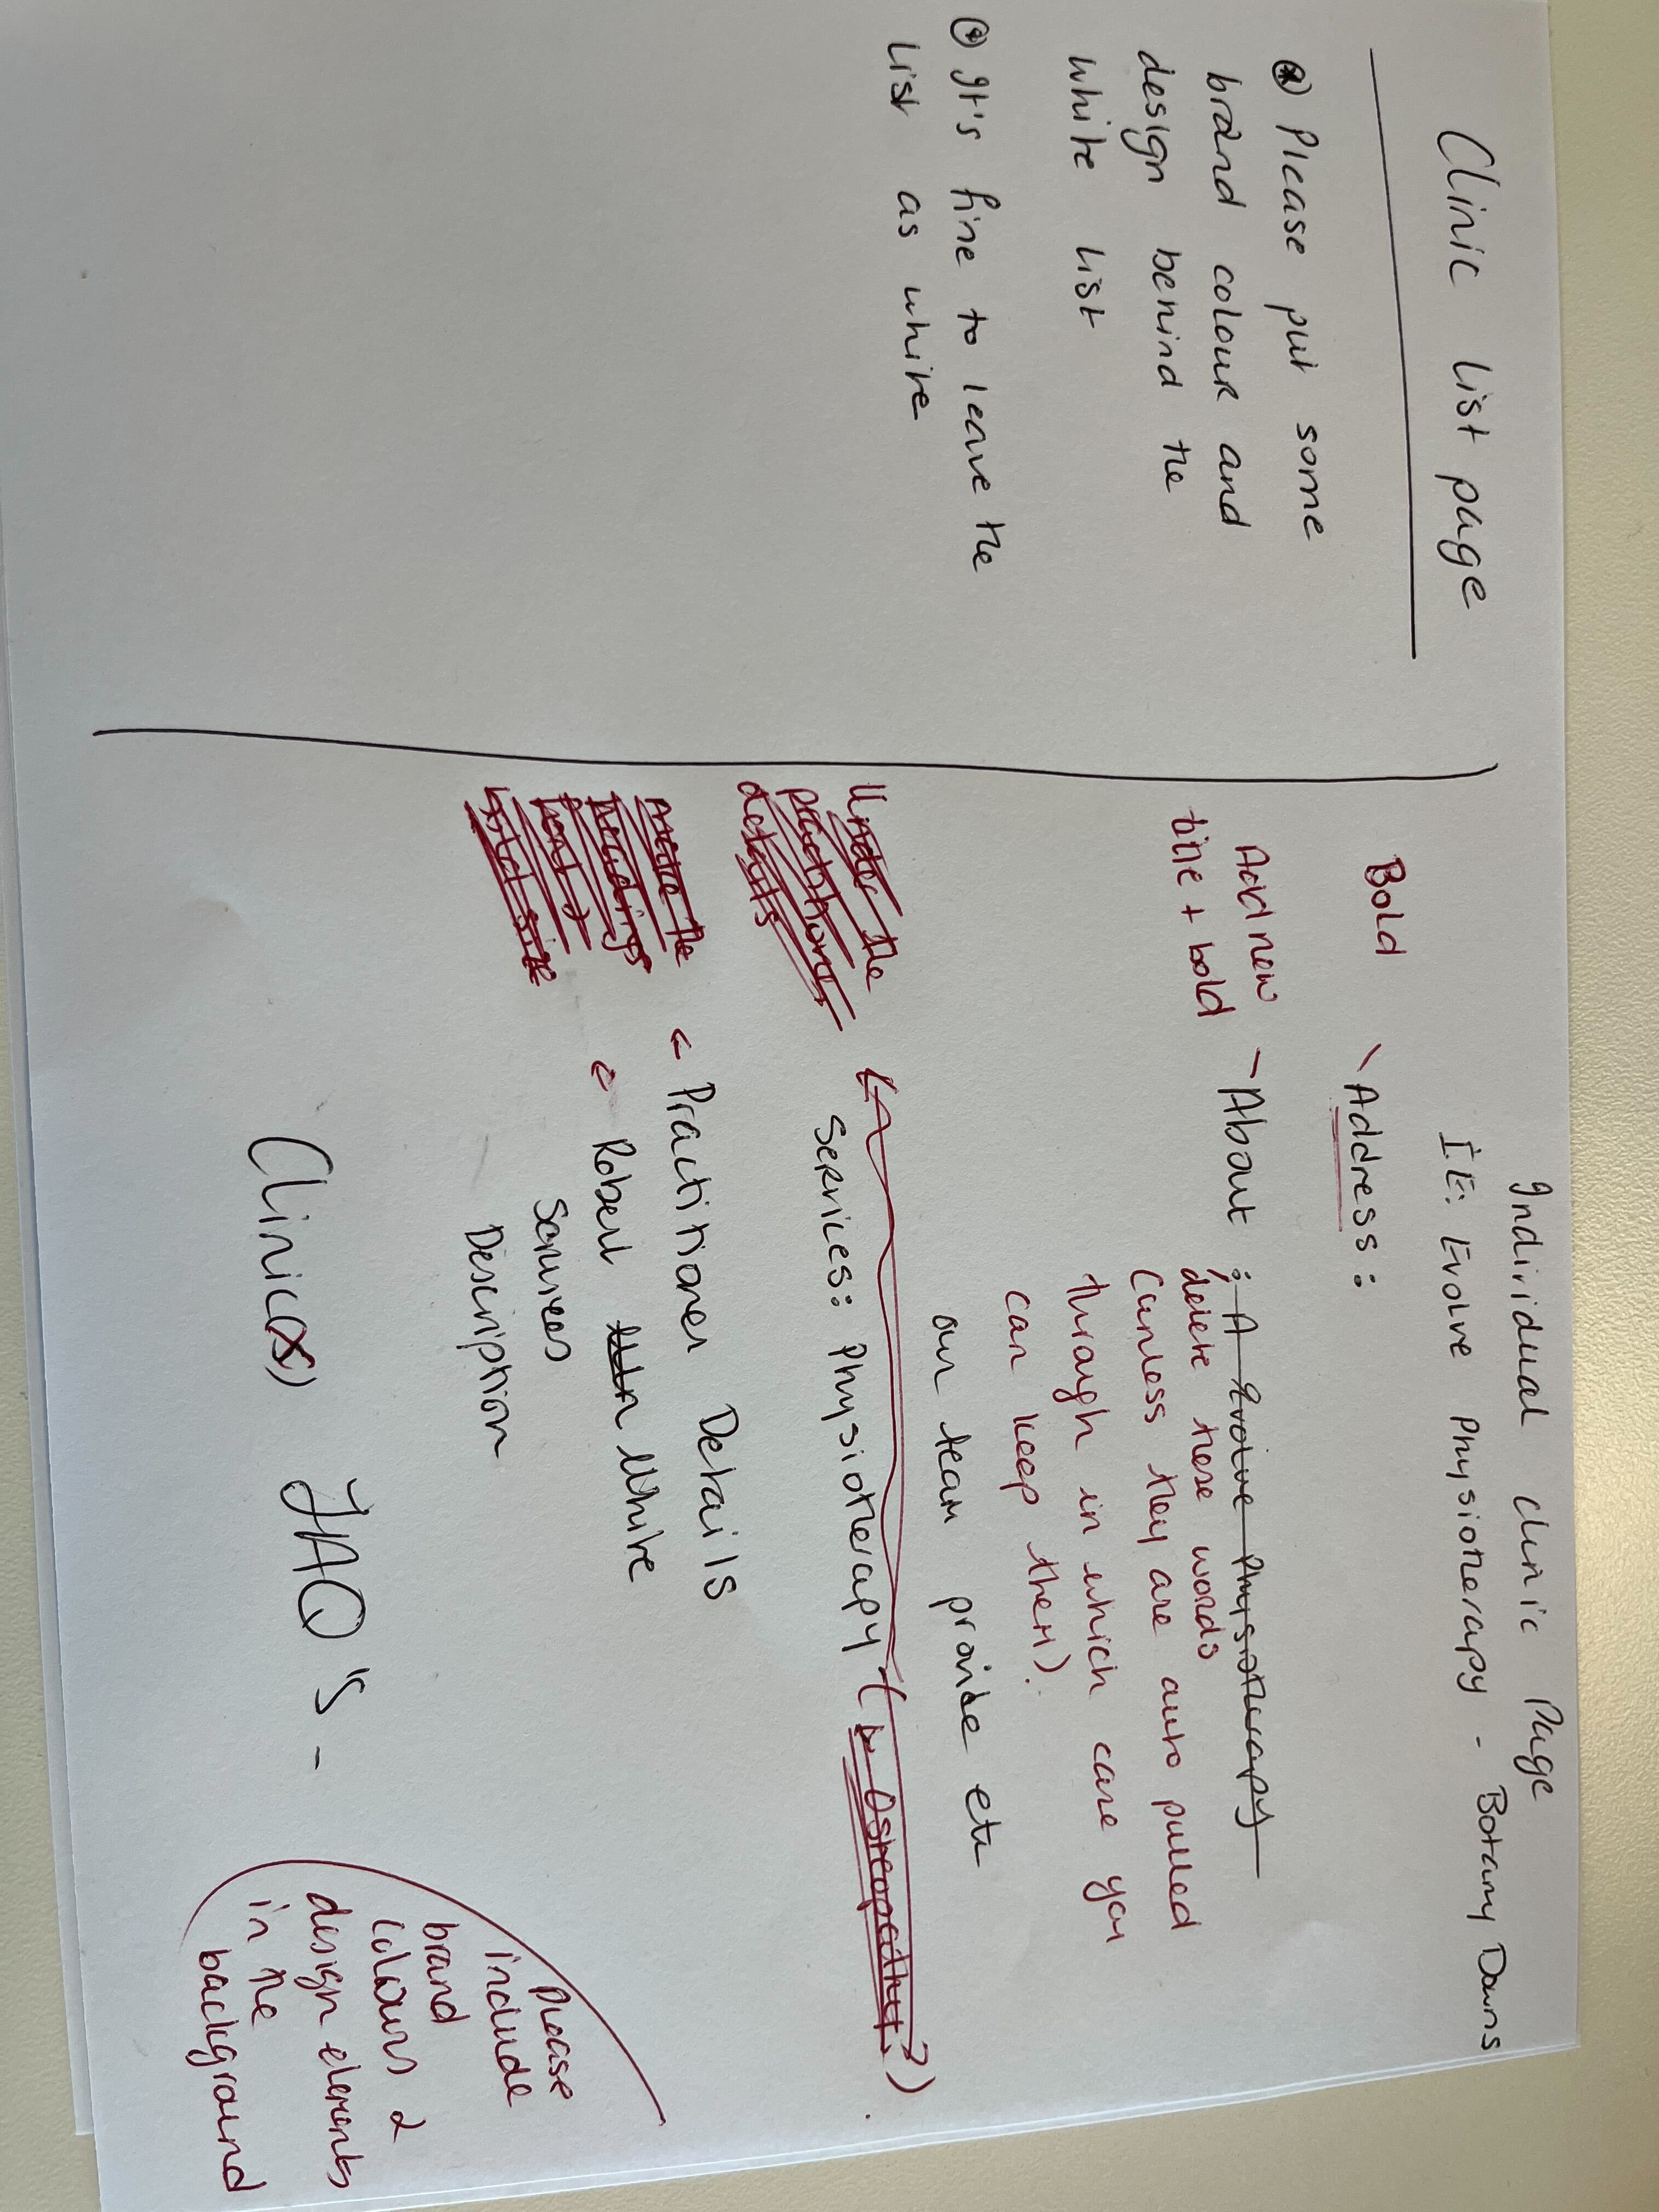 Clinic List page
Please put some
brand colour and
design behind the
white list
It's fine to leave the
List as white
Individual clinic Page
I.E: Evolve Physiotherapy - Botany Downs
Bold - Address:
Add new
line + bold - About : A Evolve Physiotherapy
delete these words
(unless they are auto pulled
through in which case you
can keep them).
our team provide etc
Under the
practitioner
details
Services: Physiotherapy ( Osteopathy?)
make the
headings
font &
Practitioner Details
Robert White
Services
Description
Clinic(s) FAQ's -
Please
include
brand
colours &
design elements
in the
background